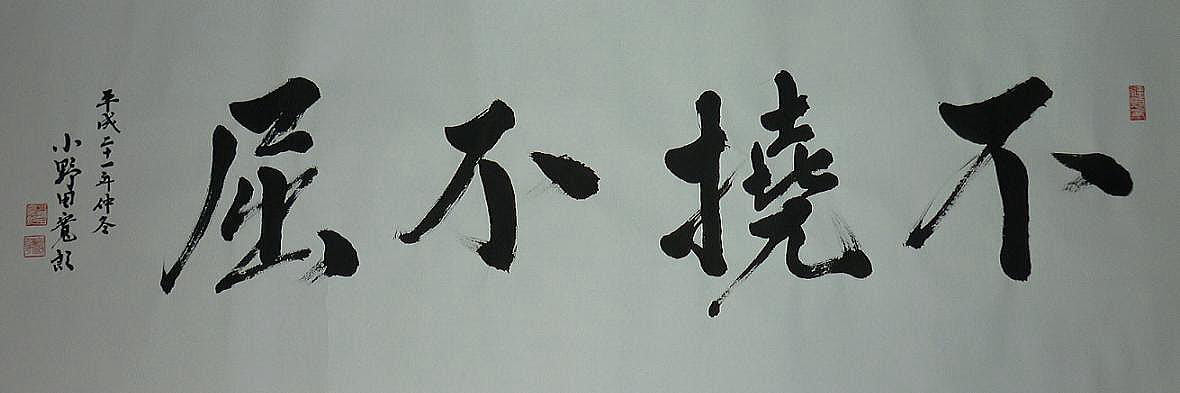 不撓不屈
平成二十一年仲冬
小野田寛郎